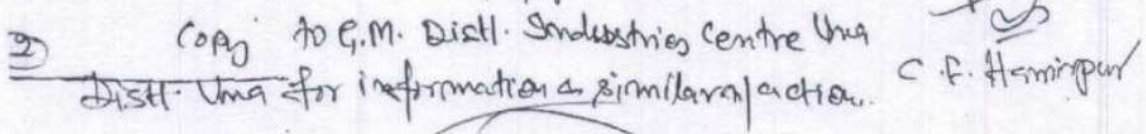 2) Copy to G.M. Distt. Industries Centre Una
Distt. Una for information & similar action.
C.F. Hamirpur